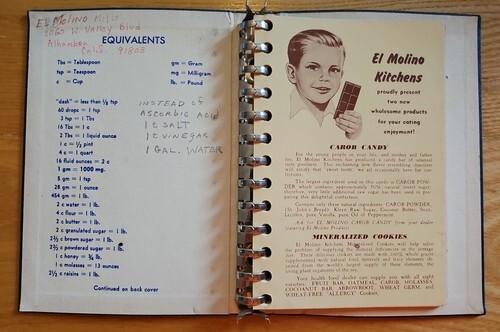 El Molino Mills
2060 W. Valley Blvd
Alhambra
Calif. 91803
EQUIVALENTS
Tbs = Tablespoon
tsp = Teaspoon
c = Cup
gm = Gram
mg = Milligram
lb. = Pound
"dash" = less than ⅛ tsp
60 drops = 1 tsp
3 tsp = 1 Tbs
16 Tbs = 1 c
2 Tbs = 1 liquid ounce
1 c = ½ pint
4 c = 1 quart
16 fluid ounces = 2 c
1 gm = 1000 mg.
5 gm = 1 tsp
28 gm = 1 ounce
454 gm = 1 lb.
2 c water = 1 lb.
4 c flour = 1 lb.
2 c butter = 1 lb.
2 c granulated sugar = 1 lb.
c brown sugar = 1 lb.
c powdered sugar = 1 lb.
1 c honey = ¾ lb.
1 c molasses = 13 ounces
2½ c raisins = 1 lb.
Continued on back cover
INSTEAD OF
ASCORBIC ACID
1 C SALT
1 C VINEGAR
1 GAL. WATER
El Molino
Kitchens
proudly present
two new
wholesome products
for your eating
enjoyment!
CAROB CANDY
For the young people in your life, and mother and father
too, El Molino Kitchens has produced a candy bar of unusual
taste goodness. This enchanting new flavor
entails that "sweet tooth" we all occasionally have for
confections.
The largest ingredient used in this candy is CAROB POW-
DER which contains approximately natural sugar;
therefore, very little additional raw sugar has been used in pre-
paring this delightful confection.
We use only these natural ingredients: CAROB POWDER,
(St. John's Bread), Kleer Raw Sugar, Coconut Butter, Soya
Lecithin, pure Vanilla, pure Oil of Peppermint.
Ask for EL MOLINO CAROB CANDY from your dealer
featuring El Molino Products
MINERALIZED COOKIES
El Molino Kitchens Mineralized Cookies will help solve
the problem of supplying the mineral deficiencies in the average
diet. These delicious cookies are made with 100% whole grains
supplemented with natural food minerals and trace elements ob-
tained from the world's largest supply of these elements, the
living plant organisms of the sea.
Your health food dealer can supply you with all eight
varieties: FRUIT BAR, OATMEAL, CAROB, MOLASSES,
COCOANUT BAR, ARROWROOT, WHEAT GERM, and
WHEAT-FREE "ALLERGY" Cookies.